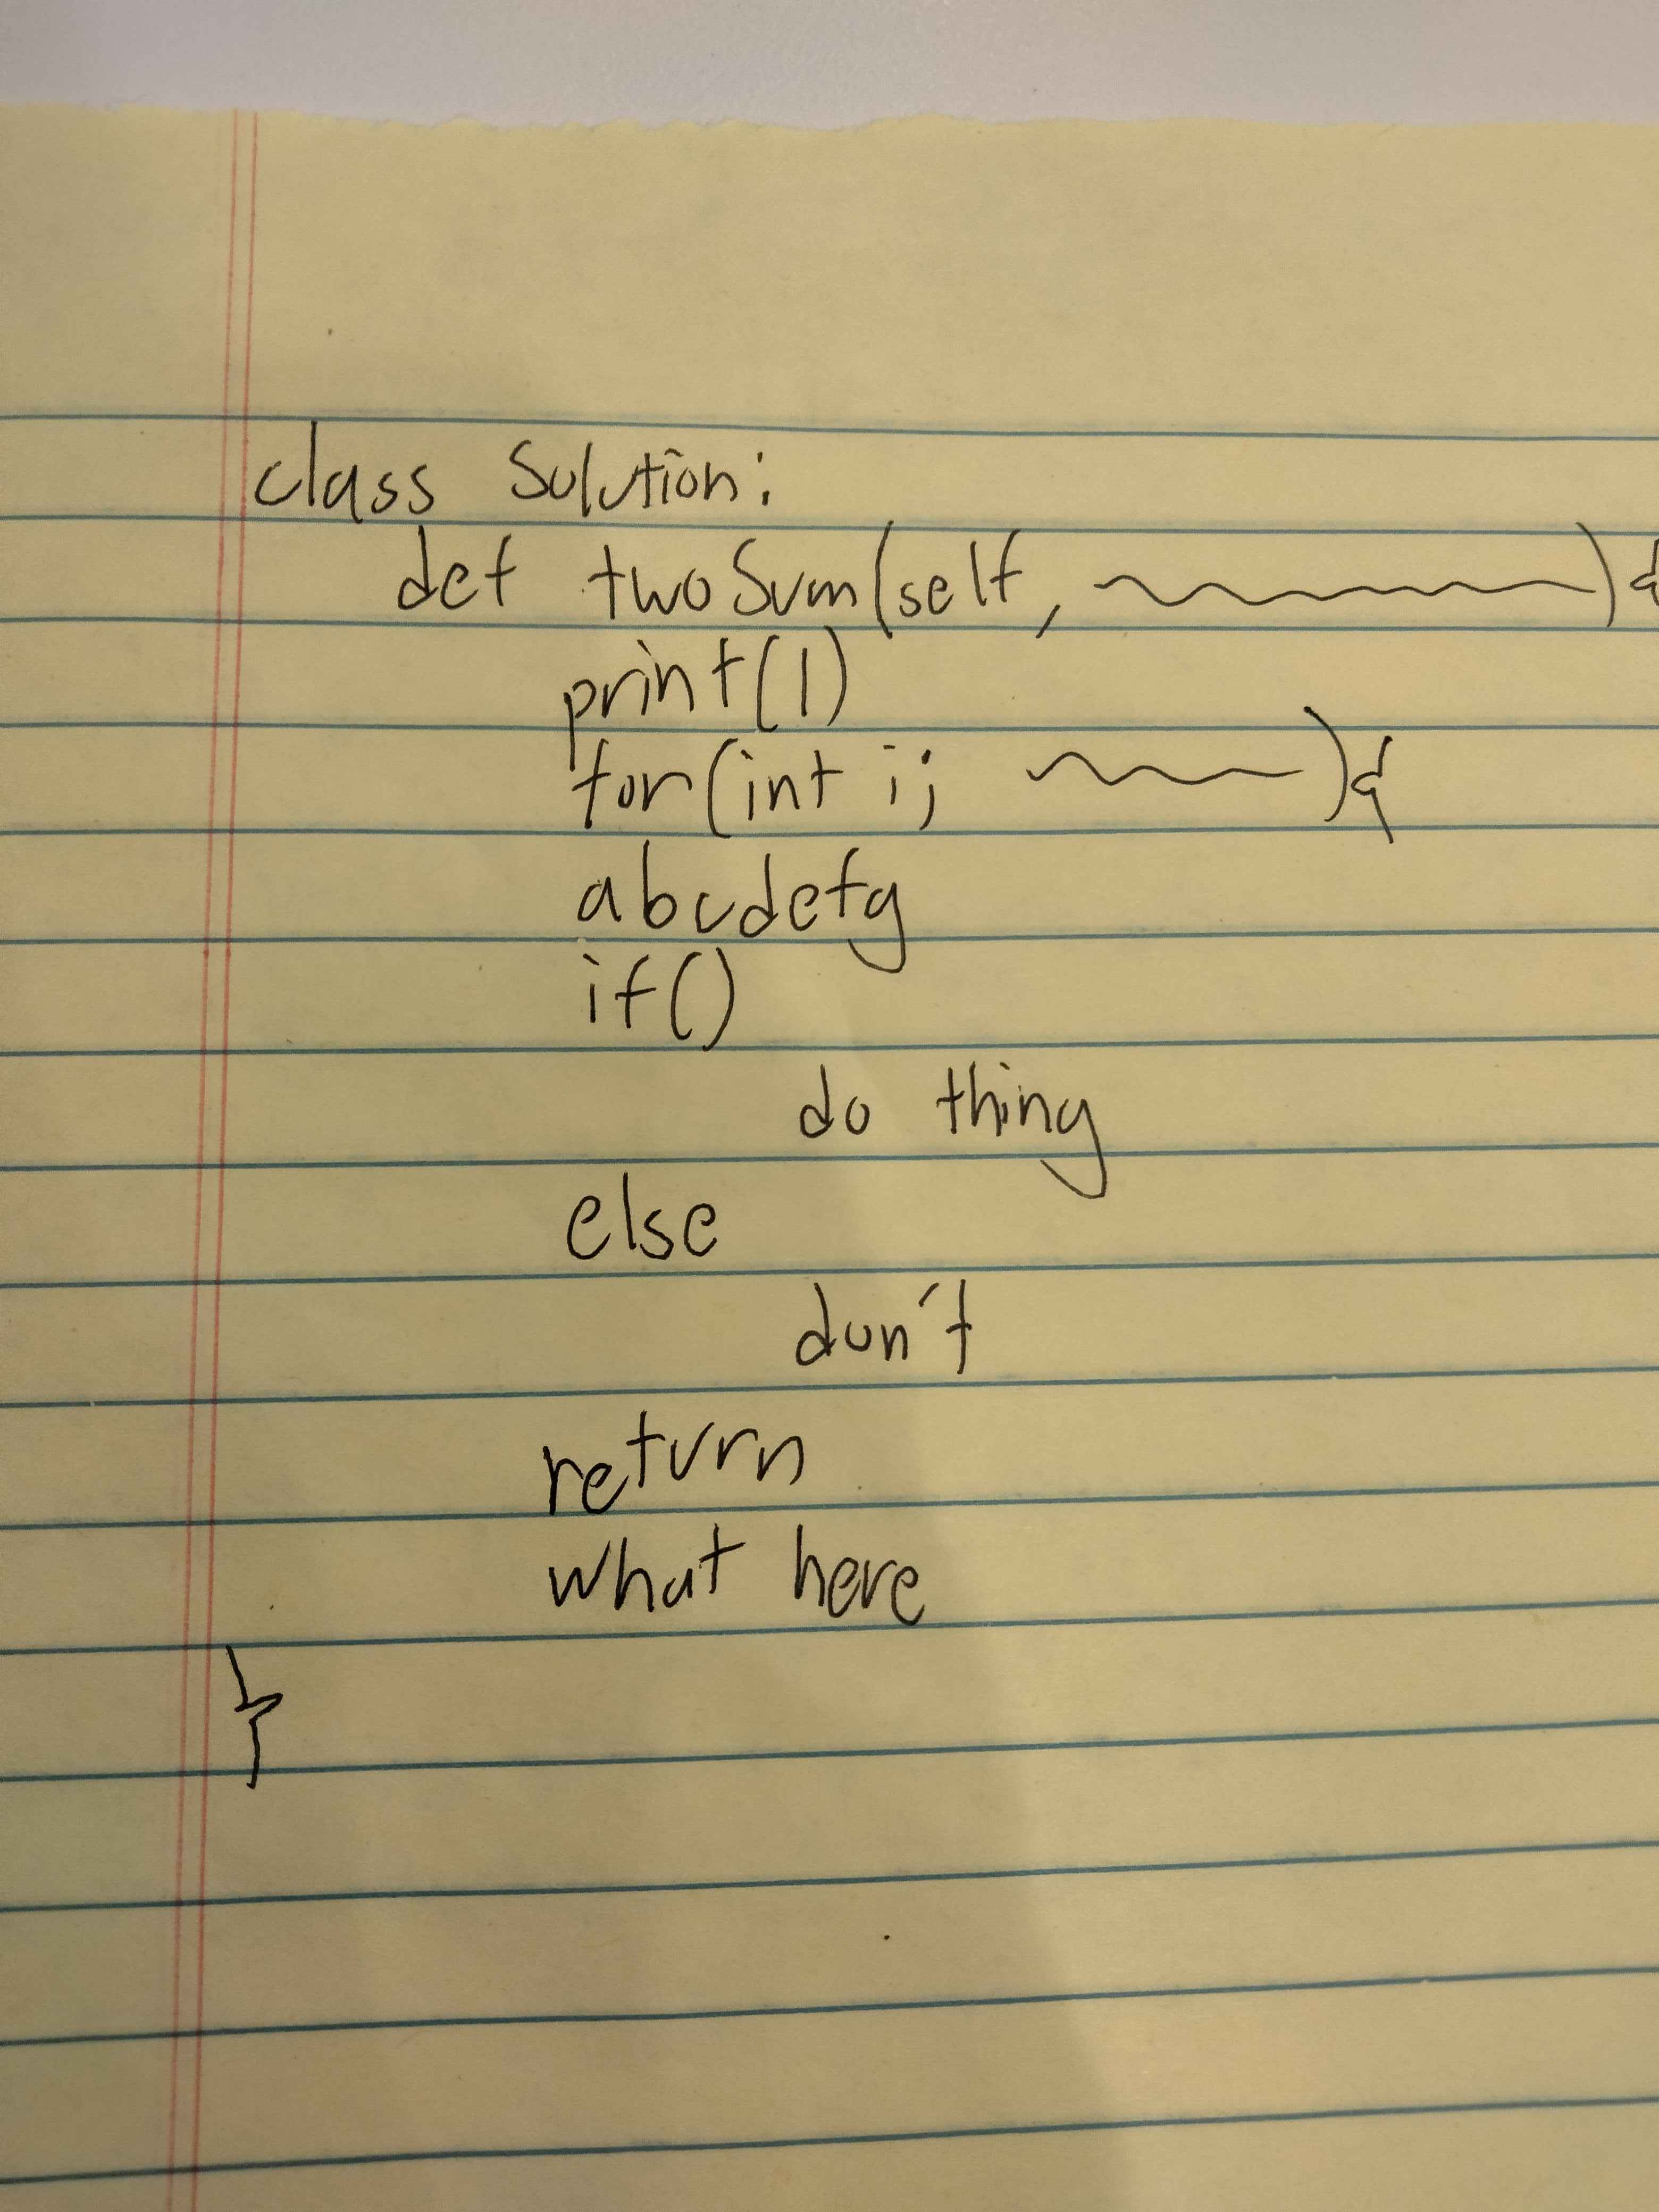 class Solution:
def twoSum(self, ){
print(1)
for(int i; ){
abcdefg
if()
do thing
else
don't
return
what here
}